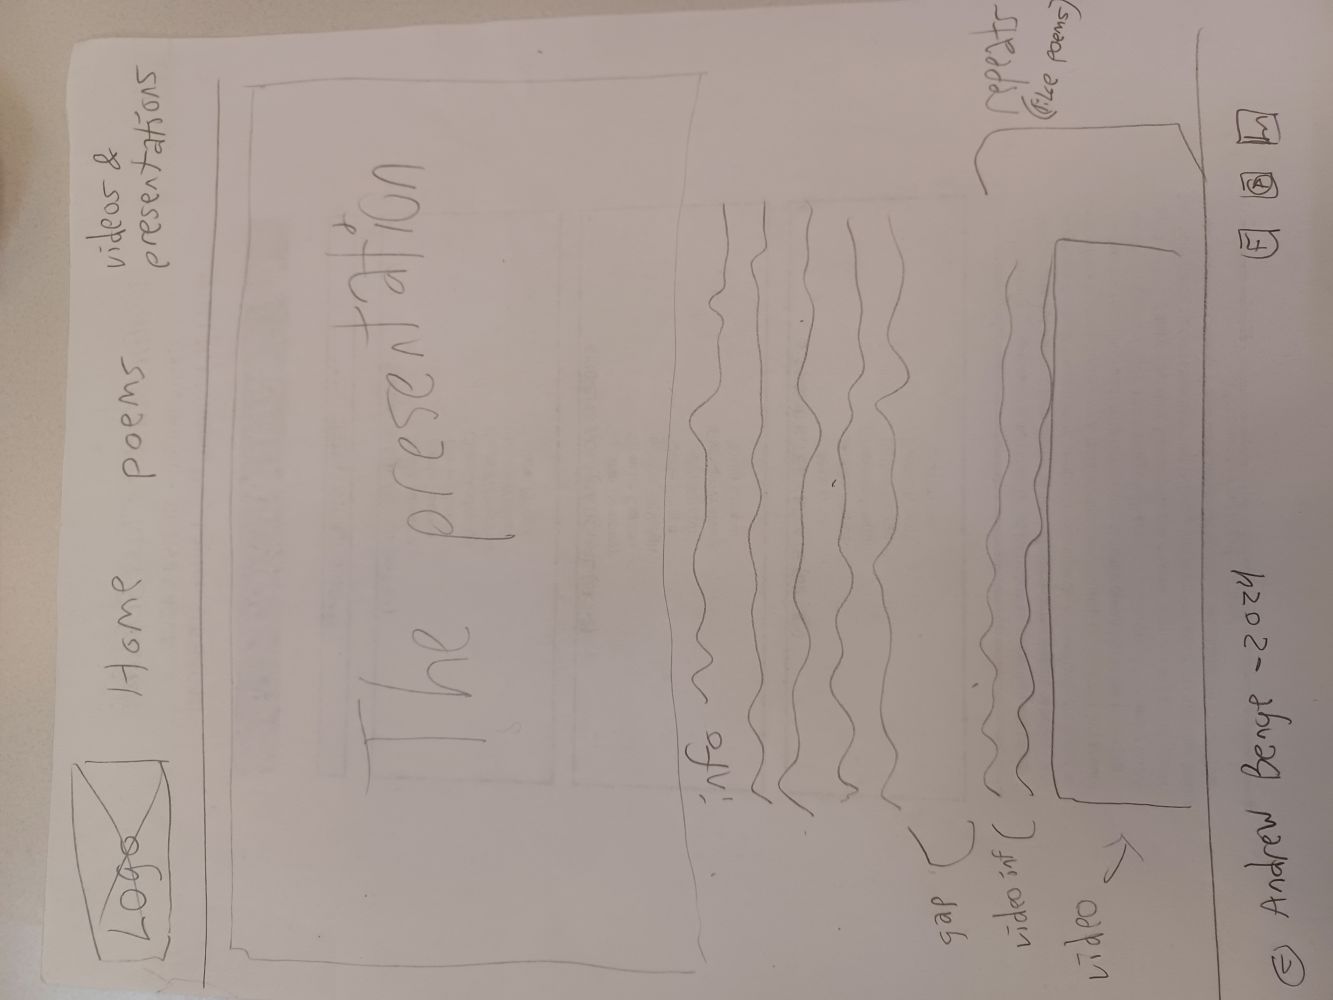 Logo Home poems videos &
presentations
The presentation
info
gap
video inf
repeats
(like poems)
video
© Andrew Benge - 2024
F
In